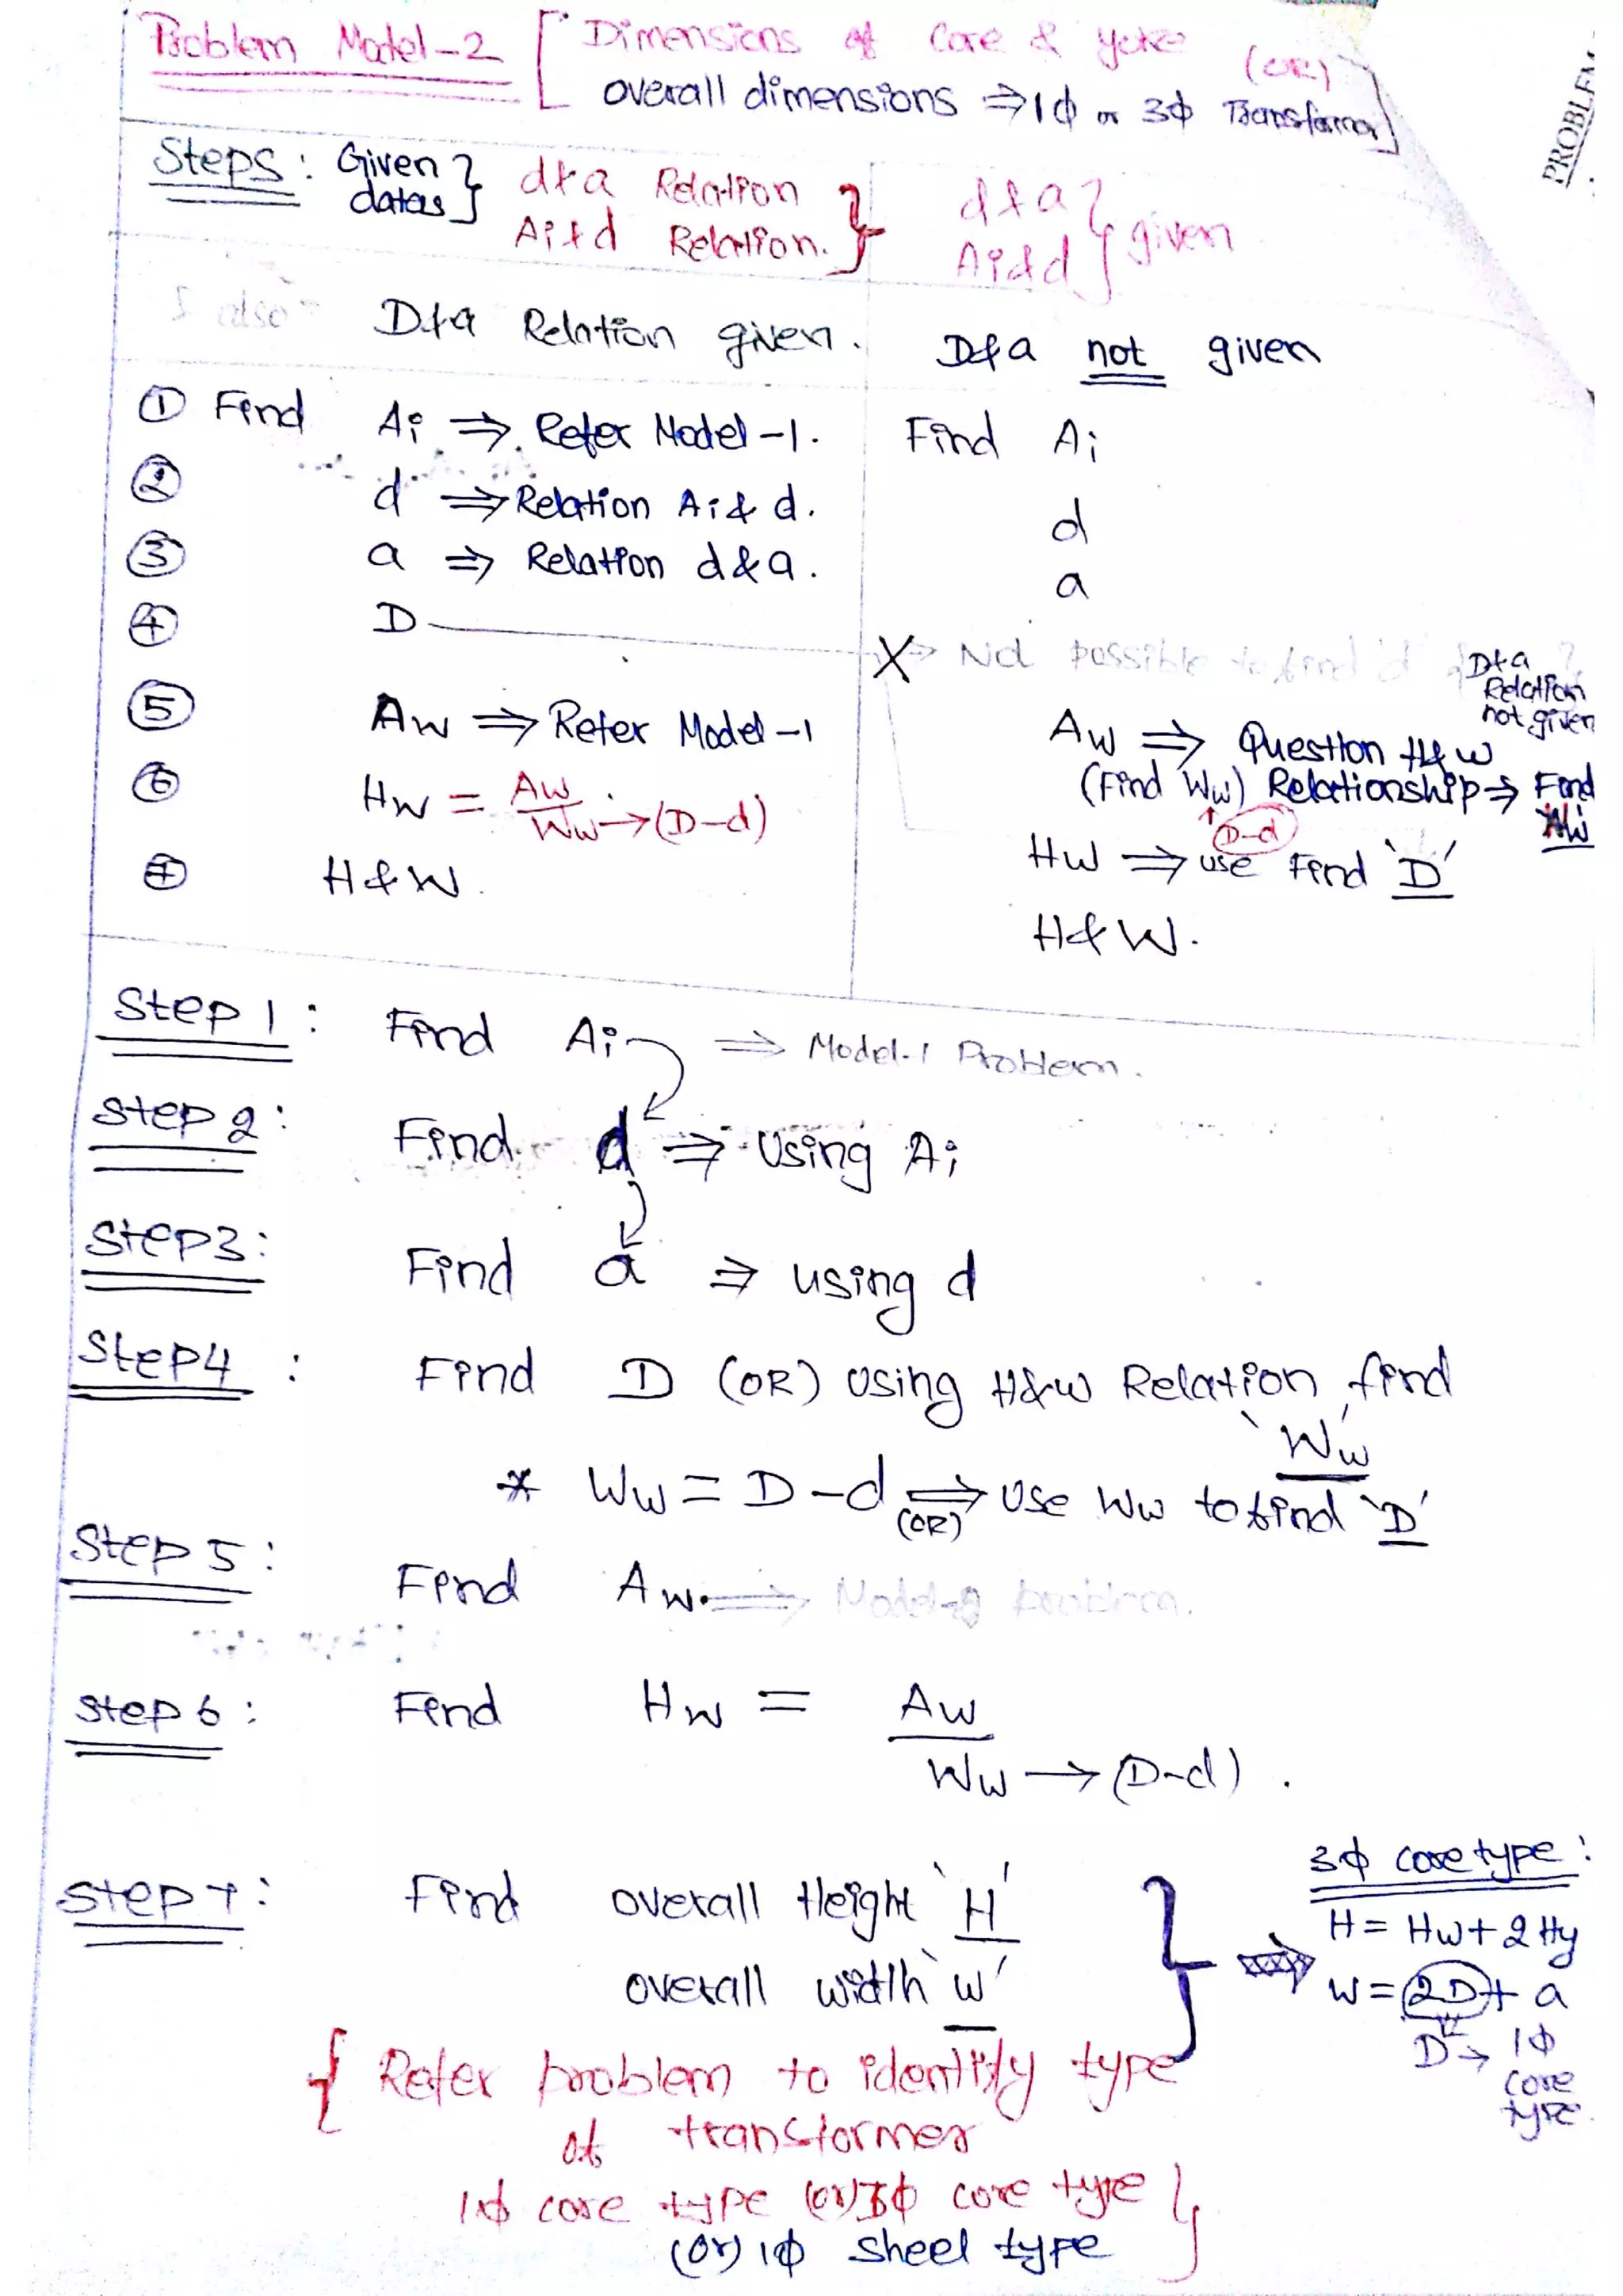 Problem Model-2 [ Dimensions of Core & yoke (OR)
overall dimensions ⇒ 1ϕ or 3ϕ Transformer ]
PROBLEM
Steps : Given datas } d & a Relation
Ai & d Relation. }
d & a
Ai & d } given
D & a Relation given.
D & a not given
① Find Ai ⇒ Refer Model-1.
Find Ai
② d ⇒ Relation Ai & d.
d
③ a ⇒ Relation d & a.
a
④ D
X → Not possible to find 'd'
D & a Relation not given
⑤ Aw ⇒ Refer Model-1
Aw ⇒ Question H & w
(Find Ww) Relationship ⇒ Find Ww
D-d
⑥ Hw = Aw / Ww → (D-d)
Hw ⇒ use Find 'D'
⑦ H & W.
H & W.
Step 1 : Find Ai ⇒ Model-1 Problem.
Step 2 : Find d ⇒ Using Ai
Step 3 : Find a ⇒ using d
Step 4 : Find D (OR) Using H & w Relation find 'Ww'
* Ww = D - d ⇒ (OR) Use Ww to find 'D'
Step 5 : Find Aw. ⇒ problem.
Step 6 : Find Hw = Aw / Ww → (D-d).
Step 7 : Find overall Height 'H'
overall width 'w' }
3ϕ core type :
H = Hw + 2Hy
W = 2D + a
D → 1ϕ core type
{ Refer problem to identify type
of transformer
1ϕ core type (or) 3ϕ core type
(or) 1ϕ sheel type }